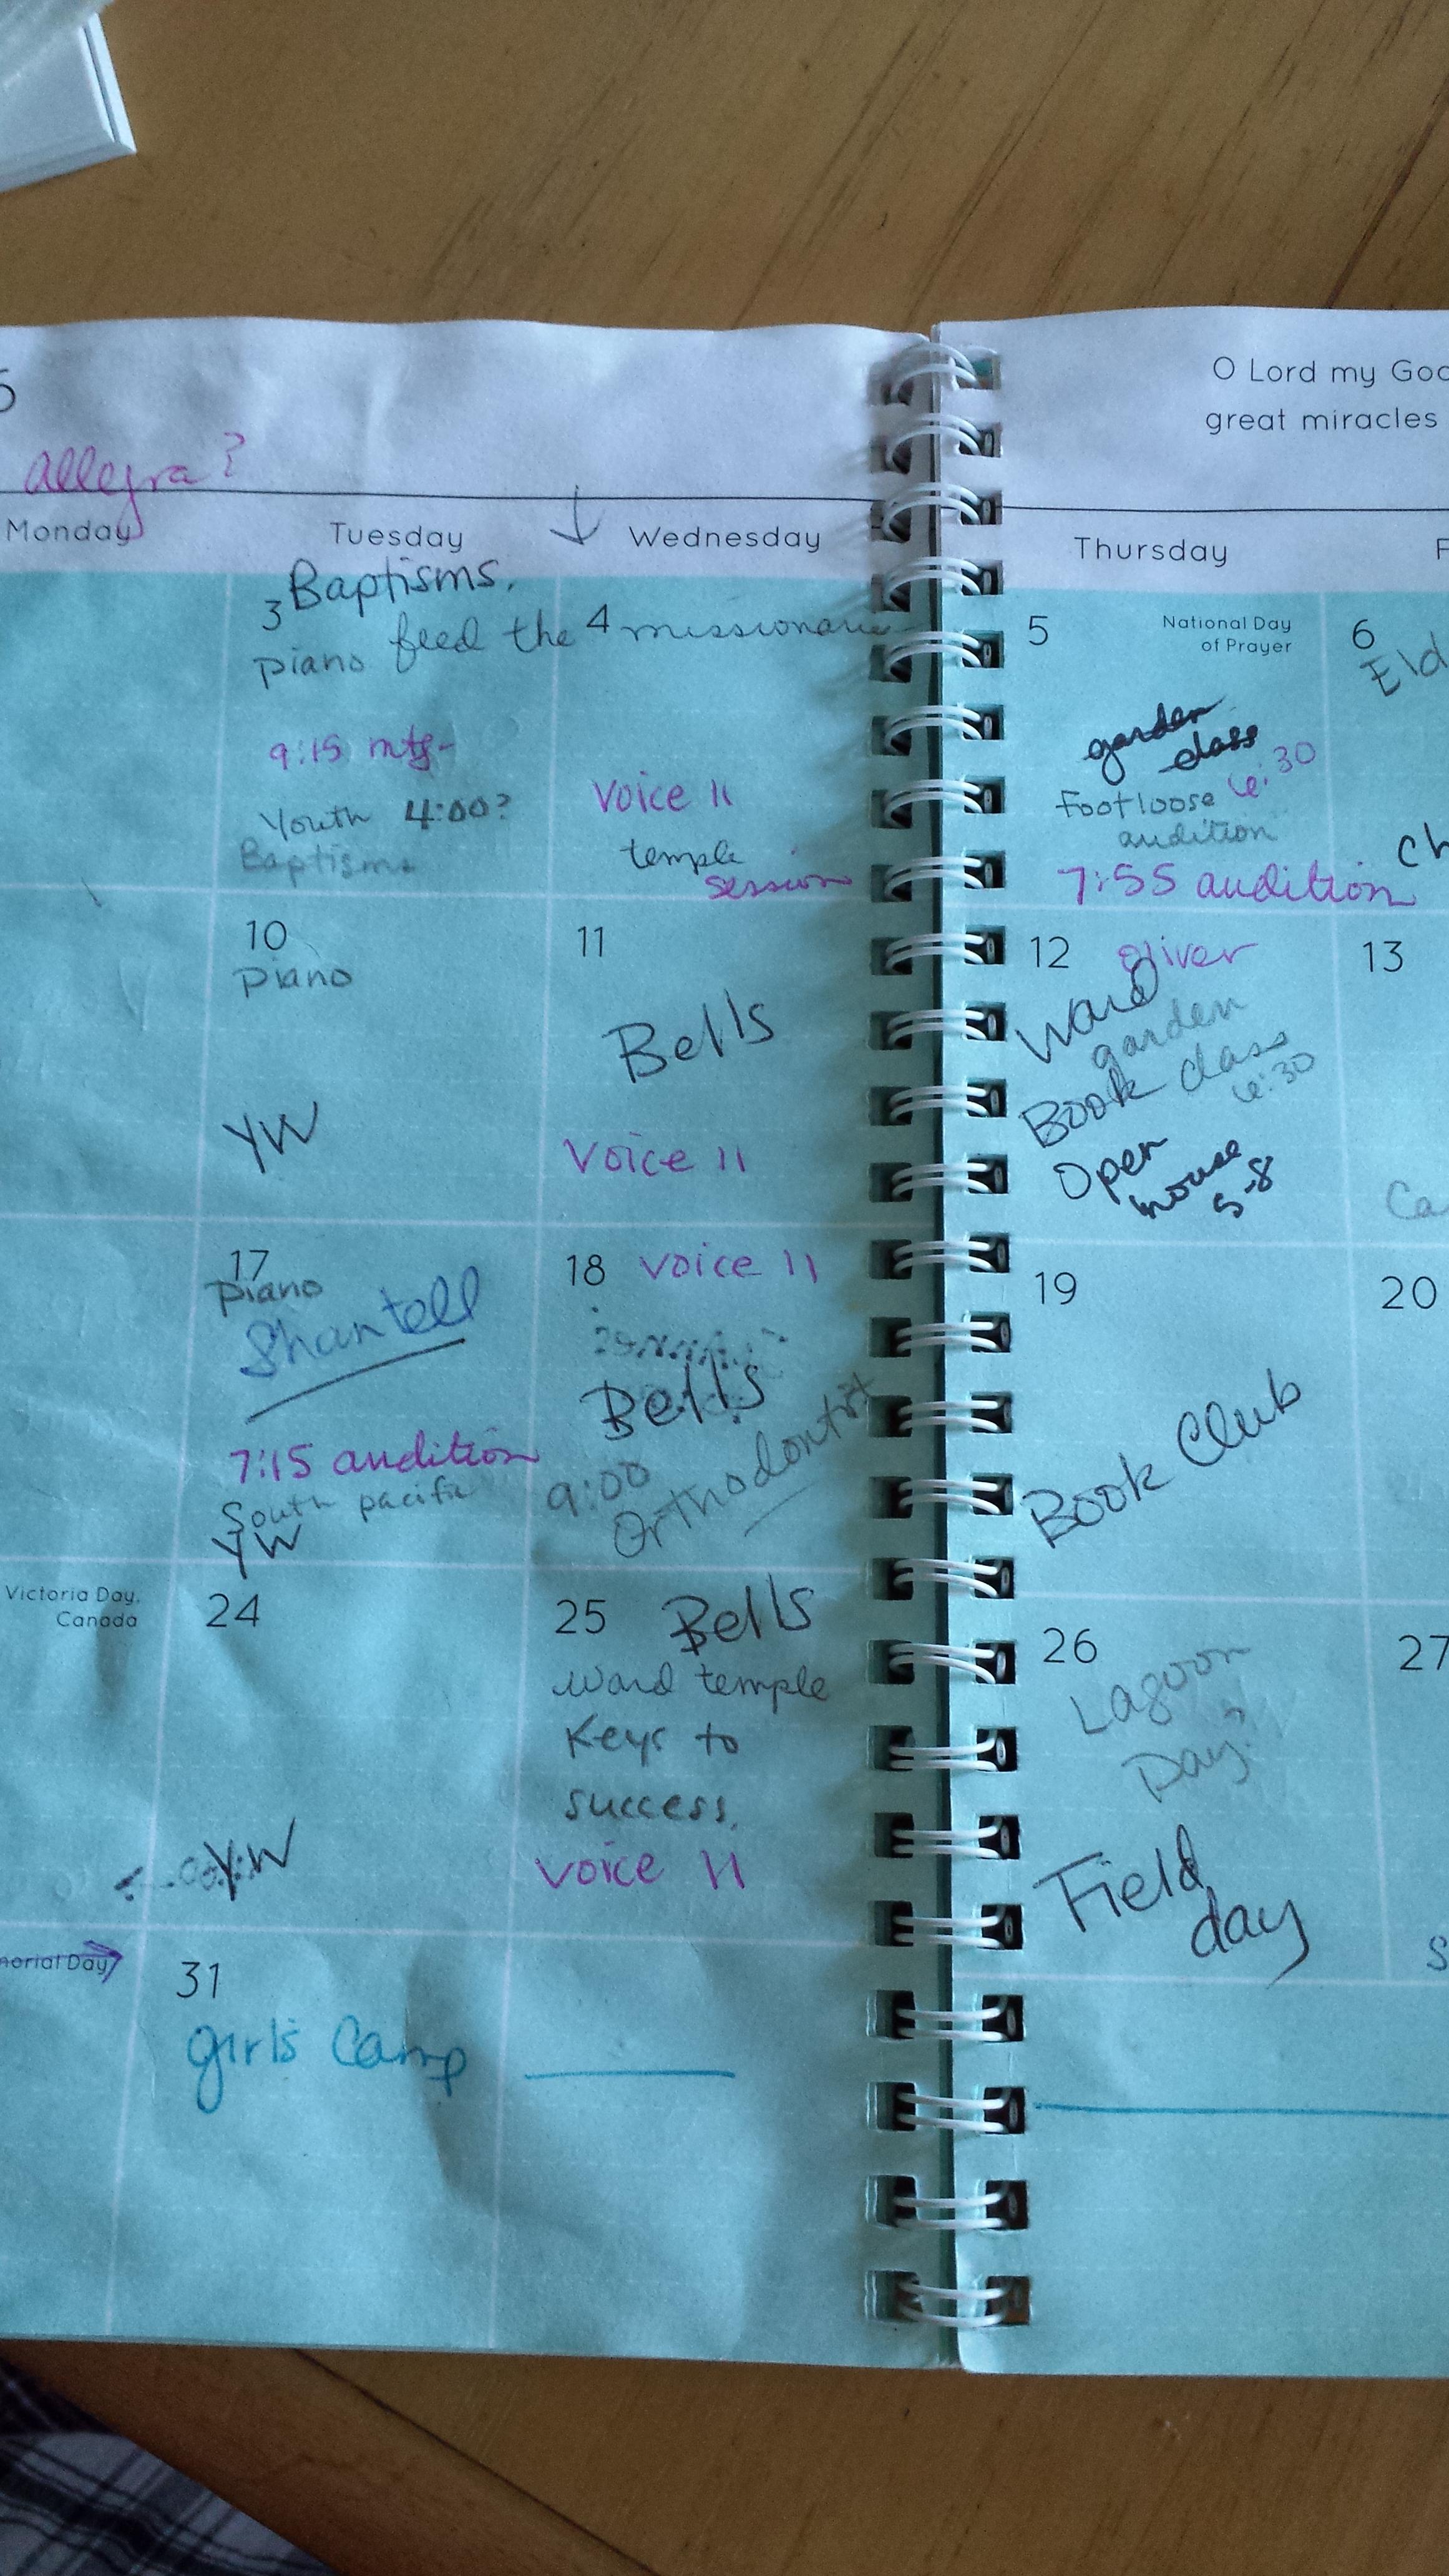 O Lord my God
great miracles
allegra?
Monday
Tuesday
Wednesday
Thursday
3 Baptisms.
feed the
piano
9:15 mtg.
Youth 4:00?
Baptisms
4 missionaries
Voice 11
temple
session
5
National Day
of Prayer
garden
class
6:30
Footloose
audition
7:55 audition
6
Eld
Ch
10
piano
YW
11
Bells
Voice 11
12 Oliver
Ward
garden
class
6:30
Book
Open
house
5-8
13
Ca
17
piano
Shantell
7:15 audition
South pacific
YW
18 voice 11
Bells
9:00
Orthodontist
19
Book Club
20
Victoria Day,
Canada
24
YW
25 Bells
ward temple
Keys to
success.
voice 11
26
Lagoon
Day?
Field
day
27
S
morial Day
31
girls Camp